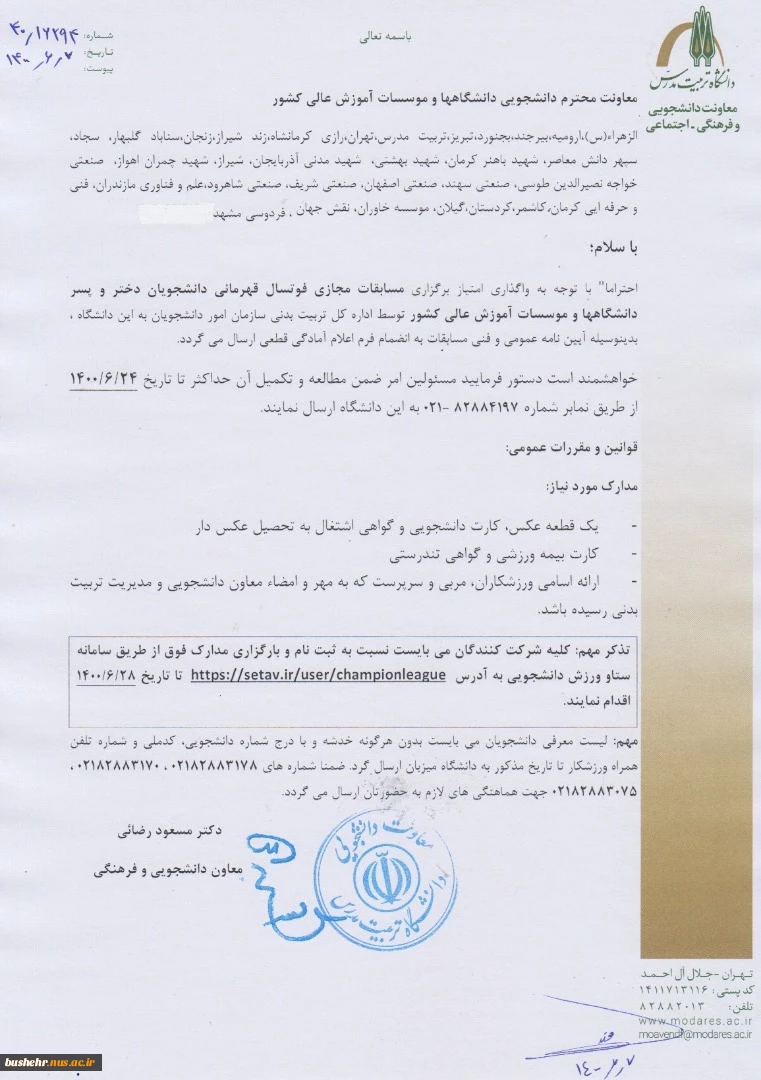 باسمه تعالی
شماره: ۴۰/۱۶۲۹۴
تاریخ: ۱۴۰۰/۶/۷
پیوست:
دانشگاه تربیت مدرس
معاونت دانشجویی
و فرهنگی - اجتماعی
معاونت محترم دانشجویی دانشگاهها و موسسات آموزش عالی کشور
الزهراء(س)،ارومیه،بیرجند،بجنورد،تبریز،تربیت مدرس،تهران،رازی کرمانشاه،زند شیراز،زنجان،سناباد گلبهار، سجاد،
سپهر دانش معاصر، شهید باهنر کرمان، شهید بهشتی، شهید مدنی آذربایجان، شیراز، شهید چمران اهواز، صنعتی
خواجه نصیرالدین طوسی، صنعتی سهند، صنعتی اصفهان، صنعتی شریف، صنعتی شاهرود،علم و فناوری مازندران، فنی
و حرفه ایی کرمان،کاشمر،کردستان،گیلان، موسسه خاوران، نقش جهان ، فردوسی مشهد
با سلام؛
احتراما" با توجه به واگذاری امتیاز برگزاری مسابقات مجازی فوتسال قهرمانی دانشجویان دختر و پسر
دانشگاهها و موسسات آموزش عالی کشور توسط اداره کل تربیت بدنی سازمان امور دانشجویان به این دانشگاه ،
بدینوسیله آیین نامه عمومی و فنی مسابقات به انضمام فرم اعلام آمادگی قطعی ارسال می گردد.
خواهشمند است دستور فرمایید مسئولین امر ضمن مطالعه و تکمیل آن حداکثر تا تاریخ ۱۴۰۰/۶/۲۴
از طریق نمابر شماره ۸۲۸۸۴۱۹۷ -۰۲۱ به این دانشگاه ارسال نمایند.
قوانین و مقررات عمومی:
مدارک مورد نیاز:
- یک قطعه عکس، کارت دانشجویی و گواهی اشتغال به تحصیل عکس دار
- کارت بیمه ورزشی و گواهی تندرستی
- ارائه اسامی ورزشکاران، مربی و سرپرست که به مهر و امضاء معاون دانشجویی و مدیریت تربیت
بدنی رسیده باشد.
تذکر مهم: کلیه شرکت کنندگان می بایست نسبت به ثبت نام و بارگزاری مدارک فوق از طریق سامانه
ستاو ورزش دانشجویی به آدرس https://setav.ir/user/championleague تا تاریخ ۱۴۰۰/۶/۲۸
اقدام نمایند.
مهم: لیست معرفی دانشجویان می بایست بدون هرگونه خدشه و با درج شماره دانشجویی، کدملی و شماره تلفن
همراه ورزشکار تا تاریخ مذکور به دانشگاه میزبان ارسال گرد. ضمنا شماره های ۰۲۱۸۲۸۸۳۱۷۸ ، ۰۲۱۸۲۸۸۳۱۷۰ ،
۰۲۱۸۲۸۸۳۰۷۵ جهت هماهنگی های لازم به حضورتان ارسال می گردد.
دکتر مسعود رضائی
معاون دانشجویی و فرهنگی
معاونت دانشجویی
دانشگاه تربیت مدرس
تهران - جلال آل احمد
کدپستی: ۱۴۱۱۷۱۳۱۱۶
تلفن: ۸۲۸۸۲۰۱۳
www.modares.ac.ir
moavendf@modares.ac.ir
۱۴۰۰/۶/۷
bushehr.nus.ac.ir